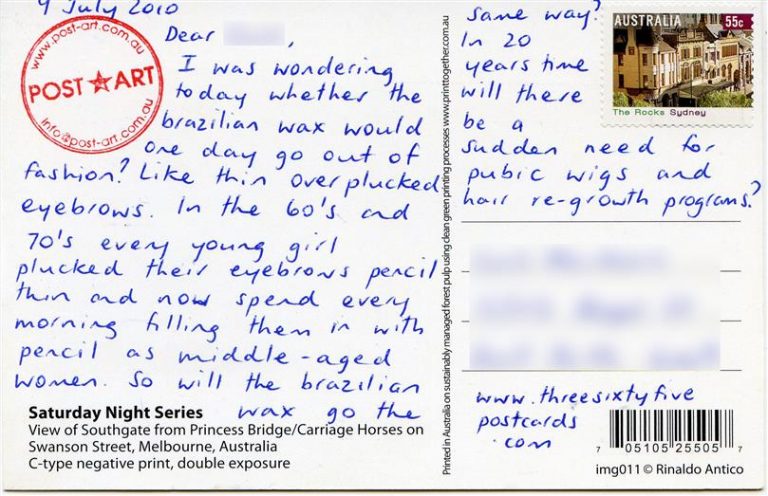 9 July 2010
www.post-art.com.au
POST ART
info@post-art.com.au
Dear
I was wondering
today whether the
brazilian wax would
one day go out of
fashion? Like thin overplucked
eyebrows. In the 60's and
70's every young girl
plucked their eyebrows pencil
thin and now spend every
morning filling them in with
pencil as middle-aged
women. So will the brazilian
wax go the
Saturday Night Series
View of Southgate from Princess Bridge/Carriage Horses on
Swanson Street, Melbourne, Australia
C-type negative print, double exposure
Printed in Australia on sustainably managed forest pulp using clean green printing processes www.printtogether.com.au
same way?
In 20
years time
will there
be a
sudden need for
pubic wigs and
hair re-growth programs?
AUSTRALIA 55c
The Rocks Sydney
www.threesixtyfive
postcards
.com
7 05105 25505 7
img011 © Rinaldo Antico